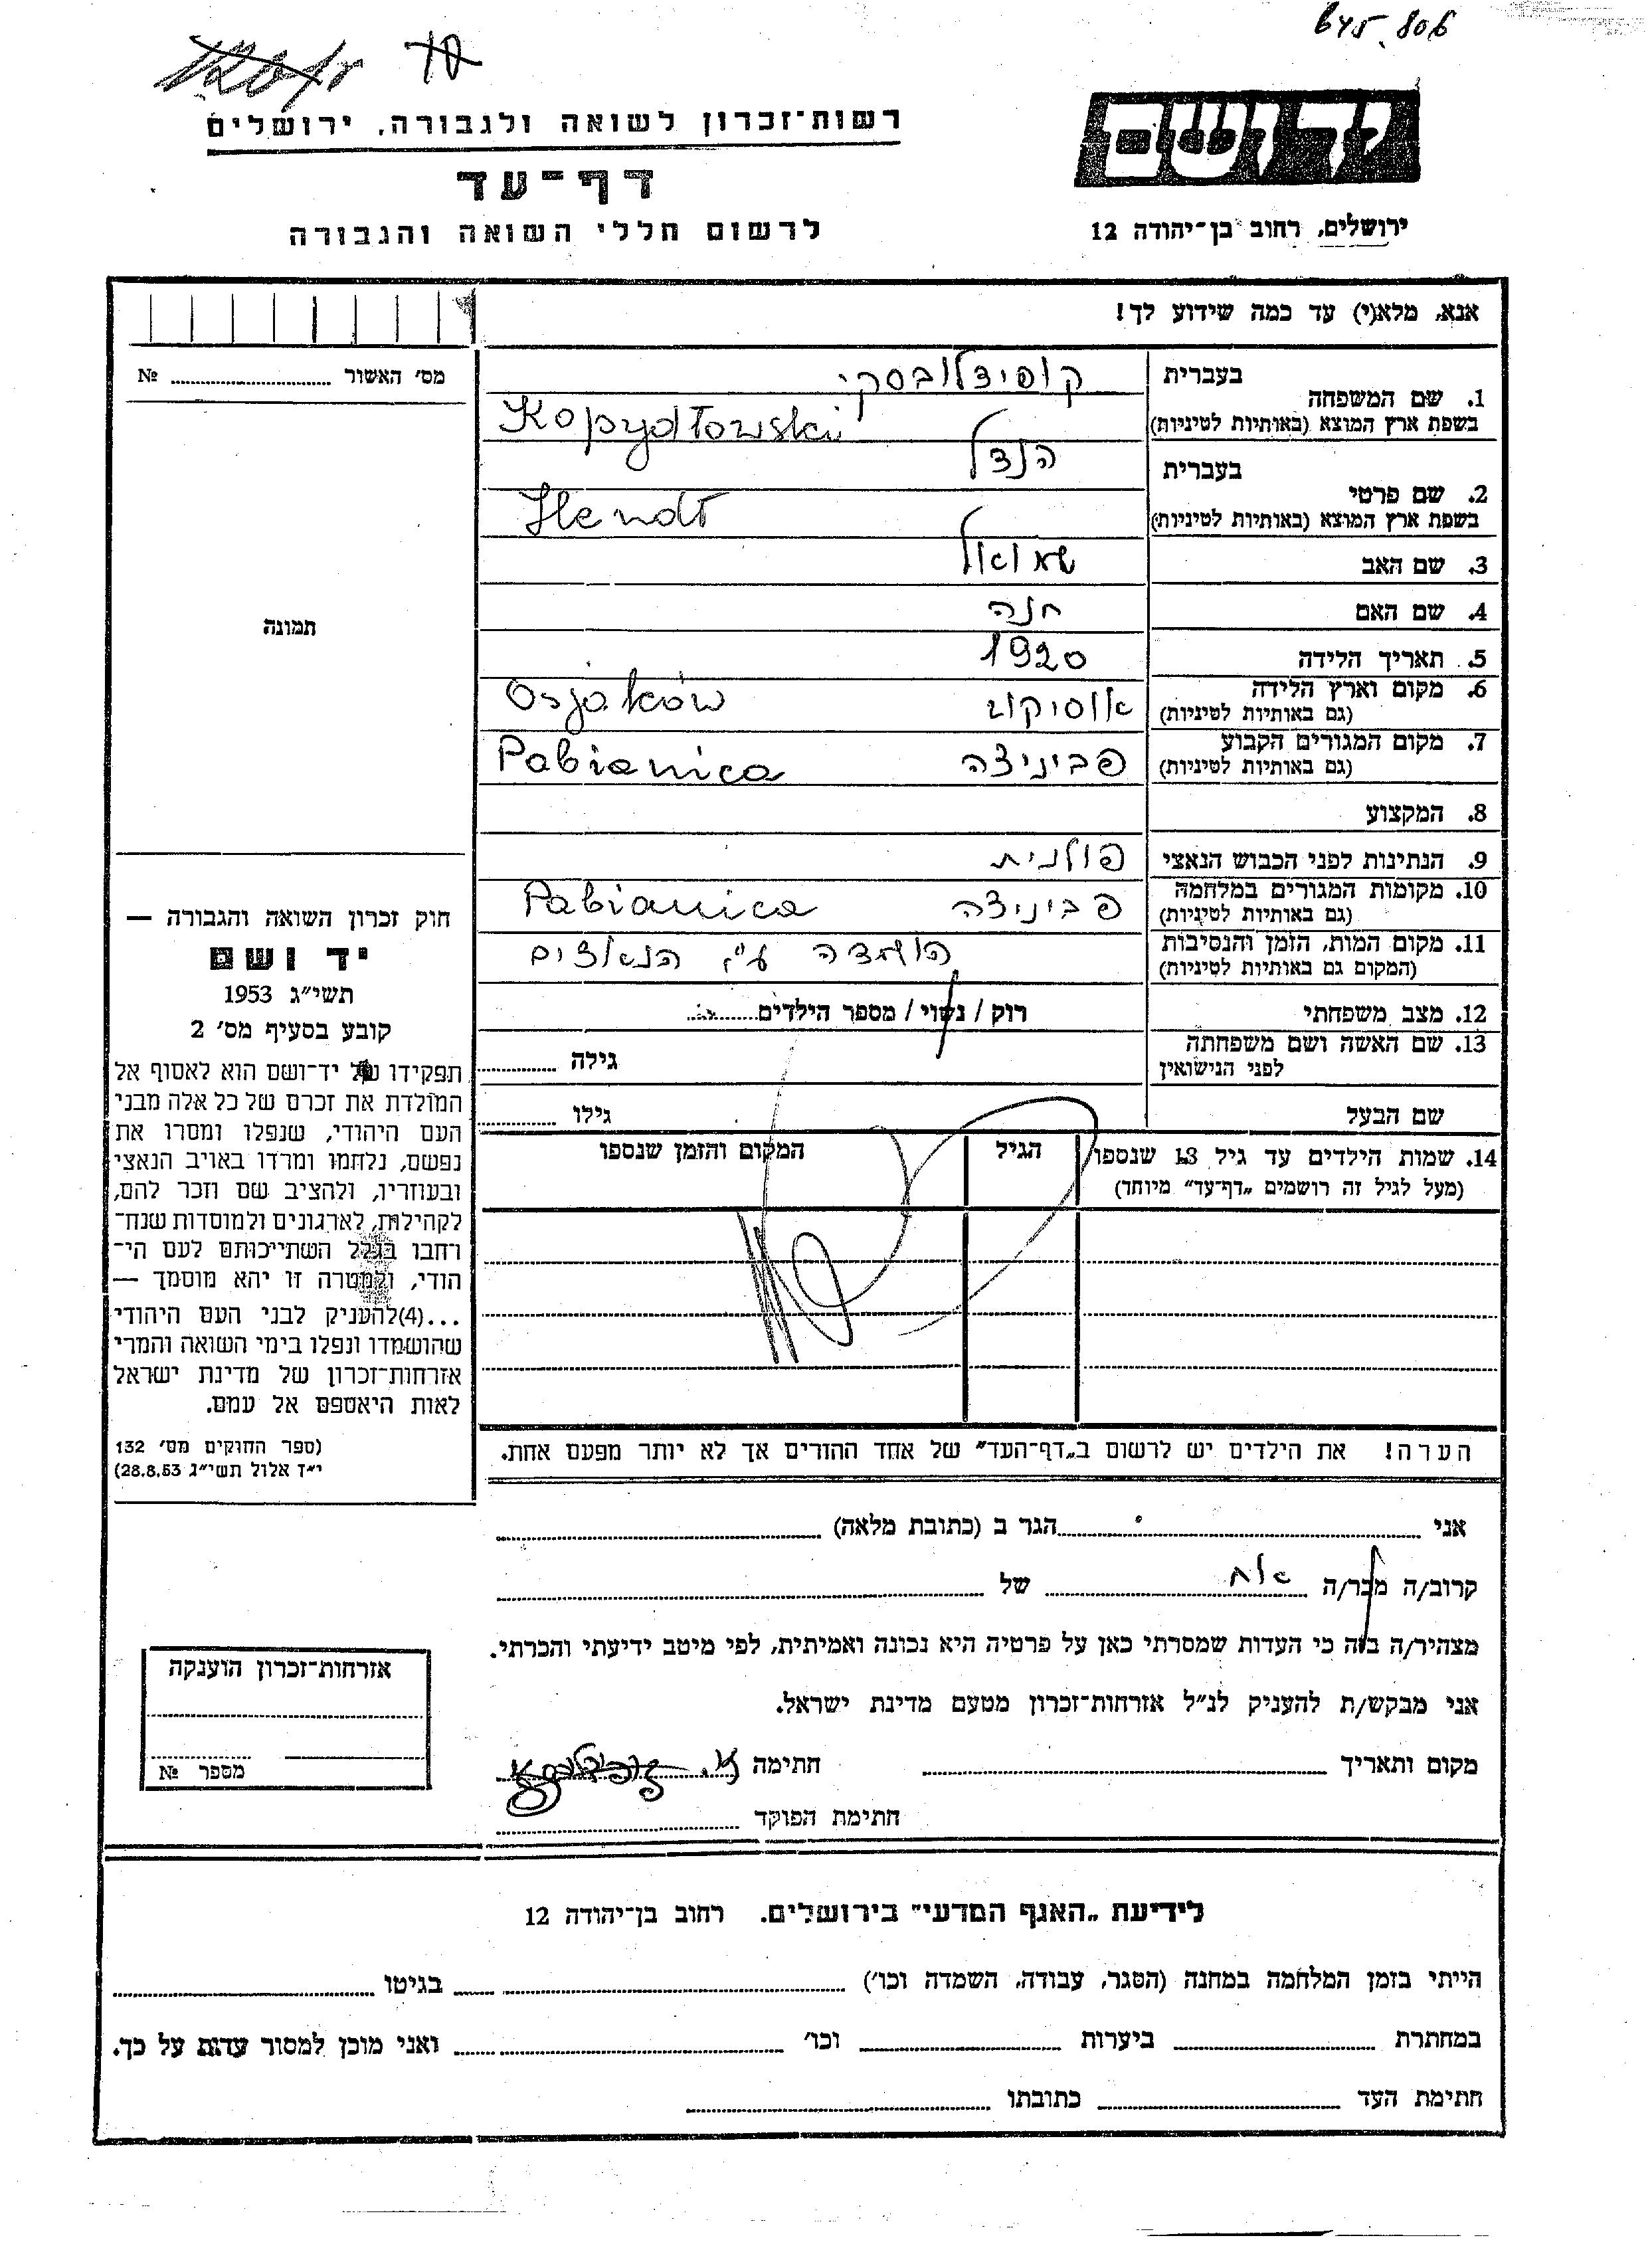 645.806
רשות־זכרון לשואה ולגבורה, ירושלים
דף־עד
לרשום חללי השואה והגבורה
יד ושם
ירושלים, רחוב בן־יהודה 12
אנא, מלא(י) עד כמה שידוע לך!
מס׳ האשור № 
1. שם המשפחה
בעברית קופידלובסקי
בשפת ארץ המוצא (באותיות לטיניות) Kopydłowski
2. שם פרטי
בעברית הנדל
בשפת ארץ המוצא (באותיות לטיניות) Hendl
3. שם האב שמואל
4. שם האם חנה
5. תאריך הלידה 1920
6. מקום וארץ הלידה אוסיקוב Osjaków
(גם באותיות לטיניות)
7. מקום המגורים הקבוע פביניצה Pabianica
(גם באותיות לטיניות)
8. המקצוע
9. הנתינות לפני הכבוש הנאצי פולנית
10. מקומות המגורים במלחמה פביניצה Pabianica
(גם באותיות לטיניות)
11. מקום המות, הזמן והנסיבות הושמדה ע״י הנאצים
(המקום גם באותיות לטיניות)
12. מצב משפחתי רוק / נשוי / מספר הילדים
13. שם האשה ושם משפחתה
לפני הנישואין
גילה
שם הבעל גילו
14. שמות הילדים עד גיל 13 שנספו הגיל המקום והזמן שנספו
(מעל לגיל זה רושמים „דף־עד״ מיוחד)
הערה! את הילדים יש לרשום ב„דף־העד״ של אחד ההורים אך לא יותר מפעם אחת.
תמונה
חוק זכרון השואה והגבורה —
יד ושם
תשי״ג 1953
קובע בסעיף מס׳ 2
תפקידו של יד־ושם הוא לאסוף אל
המולדת את זכרם של כל אלה מבני
העם היהודי, שנפלו ומסרו את
נפשם, נלחמו ומרדו באויב הנאצי
ובעוזריו, ולהציב שם וזכר להם,
לקהילות, לארגונים ולמוסדות שנח־
רבו בגלל השתייכותם לעם הי־
הודי, ולמטרה זו יהא מוסמך —
...(4)להעניק לבני העם היהודי
שהושמדו ונפלו בימי השואה והמרי
אזרחות־זכרון של מדינת ישראל
לאות היאספם אל עמם.
(ספר החוקים מס׳ 132
י״ז אלול תשי״ג 28.8.53)
אני הגר ב (כתובת מלאה)
קרוב/ה מכר/ה אח של
מצהיר/ה בזה כי העדות שמסרתי כאן על פרטיה היא נכונה ואמיתית, לפי מיטב ידיעתי והכרתי.
אני מבקש/ת להעניק לנ״ל אזרחות־זכרון מטעם מדינת ישראל.
מקום ותאריך חתימה
חתימת הפוקד
אזרחות־זכרון הוענקה
מספר №
לידיעת „האגף המדעי״ בירושלים. רחוב בן־יהודה 12
הייתי בזמן המלחמה במחנה (הסגר, עבודה, השמדה וכו׳) בגיטו
במחתרת ביערות וכו׳ ואני מוכן למסור עדות על כך.
חתימת העד כתובתו